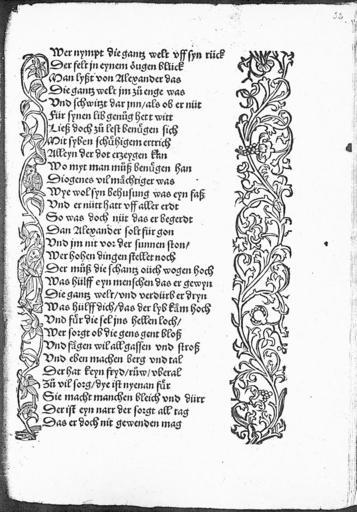 Wer nympt die gantz welt vff syn rück
Der felt in eynem ougen blück
Man lyßt von Alexander das
Die gantz welt jm zů enge was
Vnd schwitzt dar jnn / als ob er nüt
Für synen lib genůg hett witt
Ließ doch zů lest benůgen sich
Mit syben schůhigem errtrich
Alleyn der dot erzeygen kan
Wo myt man můß benůgen han
Diogenes vil mächtiger was
Wye wol syn behusung was eyn faß
Vnd er nütt hatt vff aller erdt
So was doch nüt das er begerdt
Dan Alexander solt für gon
Vnd jm nit vor der sunnen ston /
Wer hohen dingen stellet noch
Der můß die schantz ouch wogen hoch
Was hülff eyn menschen das er gewyn
Die gantz welt / vnd verdürb er dryn
Was hülff dich / das der lyb käm hoch
Vnd für die sel jns hellen loch /
Wer sorgt ob die gens gent bloß
Vnd fägen wil all gassen vnd stroß
Vnd eben machen berg vnd tal
Der hat keyn fryd / růw / vberal
Zů vil sorg / dye ist nyenan für
Sie macht manchen bleich vnd dürr
Der ist eyn narr der sorgt all tag
Das er doch nit gewenden mag